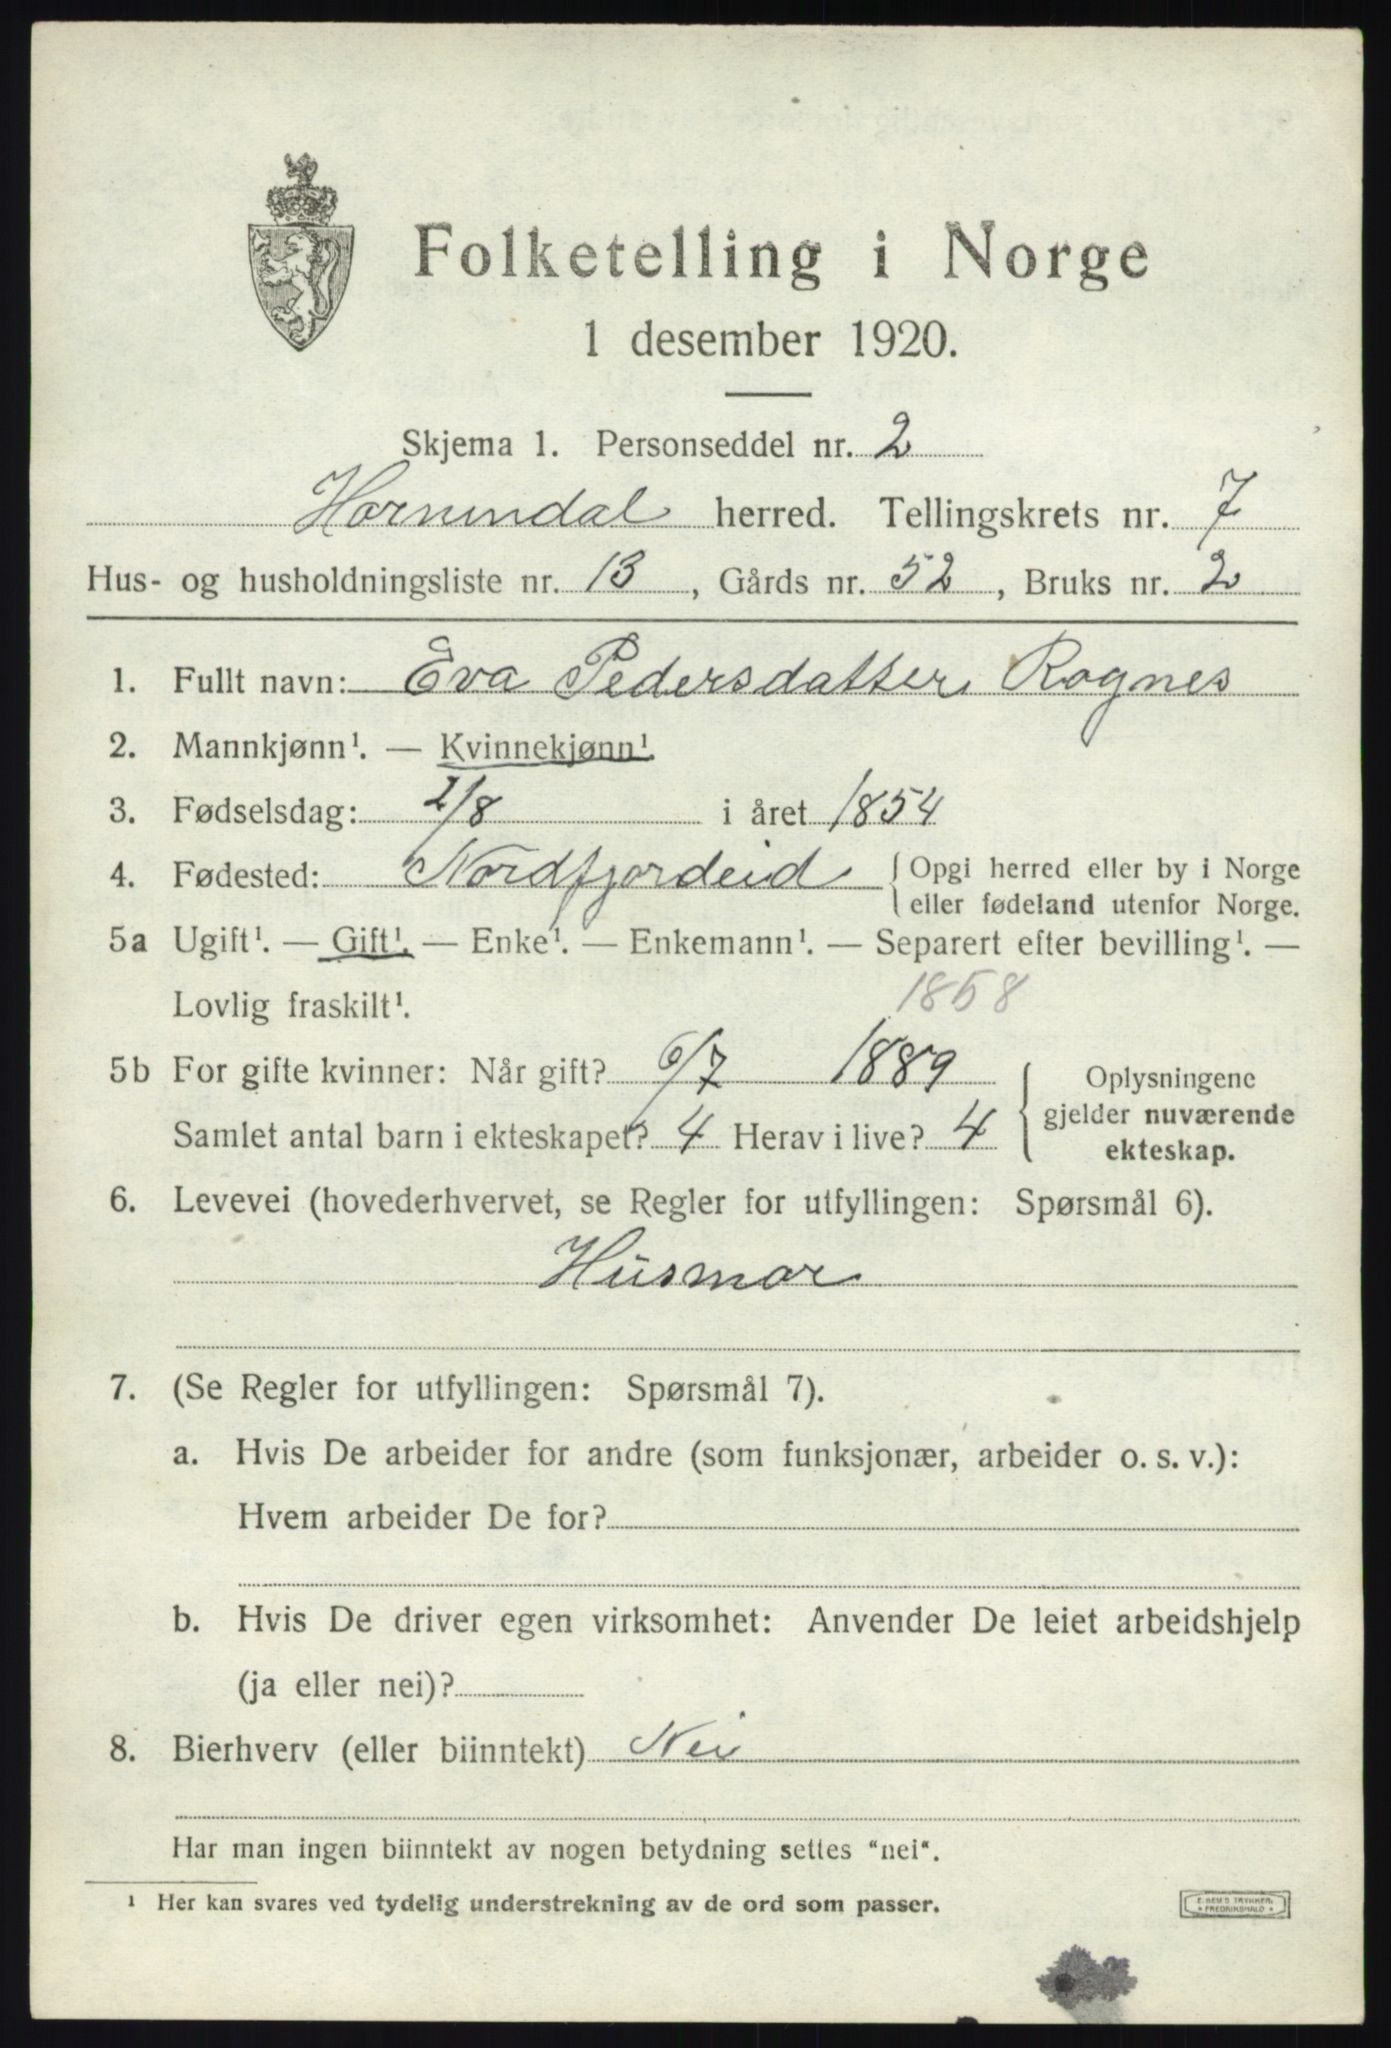 Folketelling i Norge
1 desember 1920.
Skjema 1. Personseddel nr. 2
Hornindal herred. Tellingskrets nr. 7
Hus- og husholdningsliste nr. 13, Gårds nr. 52, Bruks nr. 2
1. Fullt navn: Eva Pedersdatter Rognes
2. Mannkjønn¹. — Kvinnekjønn¹.
3. Fødselsdag: 2/8 i året 1854
4. Fødested: Nordfjordeid { Opgi herred eller by i Norge
eller fødeland utenfor Norge.
5a Ugift¹. — Gift¹. — Enke¹. — Enkemann¹. — Separert efter bevilling¹. —
Lovlig fraskilt¹. 1858
5b For gifte kvinner: Når gift? 6/7 1889 { Oplysningene
gjelder nuværende
Samlet antal barn i ekteskapet? 4 Herav i live? 4 ekteskap.
6. Levevei (hovederhvervet, se Regler for utfyllingen: Spørsmål 6).
Husmor
7. (Se Regler for utfyllingen: Spørsmål 7).
a. Hvis De arbeider for andre (som funksjonær, arbeider o. s. v.):
Hvem arbeider De for?
b. Hvis De driver egen virksomhet: Anvender De leiet arbeidshjelp
(ja eller nei)?
8. Bierhverv (eller biinntekt) Nei
Har man ingen biinntekt av nogen betydning settes "nei".
¹ Her kan svares ved tydelig understrekning av de ord som passer.